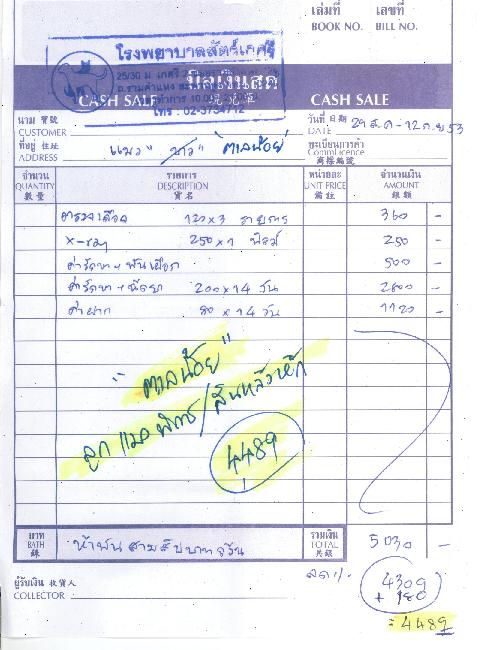 เล่มที่ เลขที่
BOOK NO. BILL NO.
โรงพยาบาลสัตว์เกศรี
บิลเงินสด
CASH SALE CASH SALE
โทร : 02-3734712
นาม 寶號 วันที่ 日期
CUSTOMER DATE 29 ส.ค - 12 ก.ย 53
ที่อยู่ 住址 แมว " ขาว " ตาลน้อย ทะเบียนการค้า
ADDRESS Comm Licence
商標編號
จำนวน รายการ หน่วยละ จำนวนเงิน
QUANTITY DESCRIPTION UNIT PRICE AMOUNT
數量 貨名 備註 銀額
ตรวจเลือด 120 x 3 รายการ 360 -
X-ray 250 x 1 ฟิล์ม 250 -
ค่ารักษา + พันเฝือก 500 -
ค่ารักษา + ฉีดยา 200 x 14 วัน 2800 -
ค่าฝาก 80 x 14 วัน 1120 -
" ตาลน้อย "
ลูกแมวพิการ/สันหลังหัก
4489
บาท ห้าพันสามสิบบาทถ้วน รวมเงิน 5030 -
BATH TOTAL
銖 共銀
ผู้รับเงิน 收貨人 4309
COLLECTOR + 180
= 4489